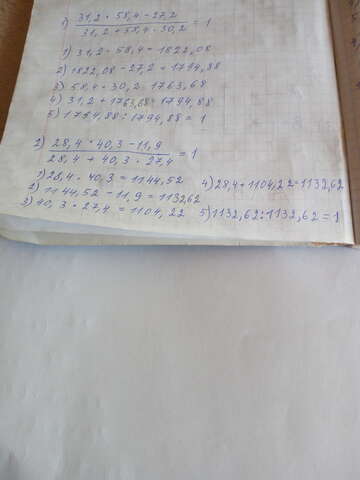 1) 31,2 · 58,4 - 27,2 / 31,2 + 58,4 · 30,2 = 1
1) 31,2 · 58,4 = 1822,08
2) 1822,08 - 27,2 = 1794,88
3) 58,4 · 30,2 = 1763,68
4) 31,2 + 1763,68 = 1794,88
5) 1794,88 : 1794,88 = 1
2) 28,4 · 40,3 - 11,9 / 28,4 + 40,3 · 27,4 = 1
1) 28,4 · 40,3 = 1144,52
2) 1144,52 - 11,9 = 1132,62
3) 40,3 · 27,4 = 1104,22
4) 28,4 + 1104,22 = 1132,62
5) 1132,62 : 1132,62 = 1